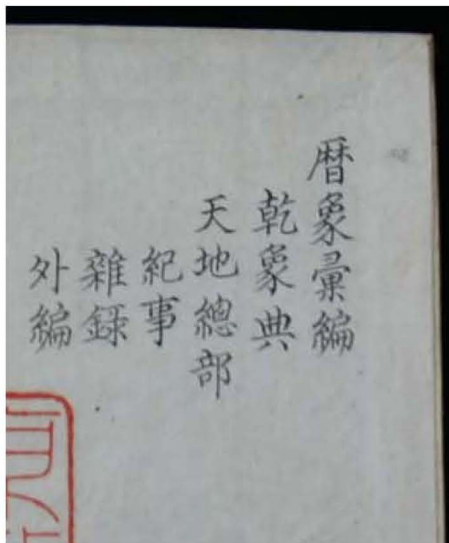 暦象彙編
乾象典
天地總部
紀事
雜録
外編